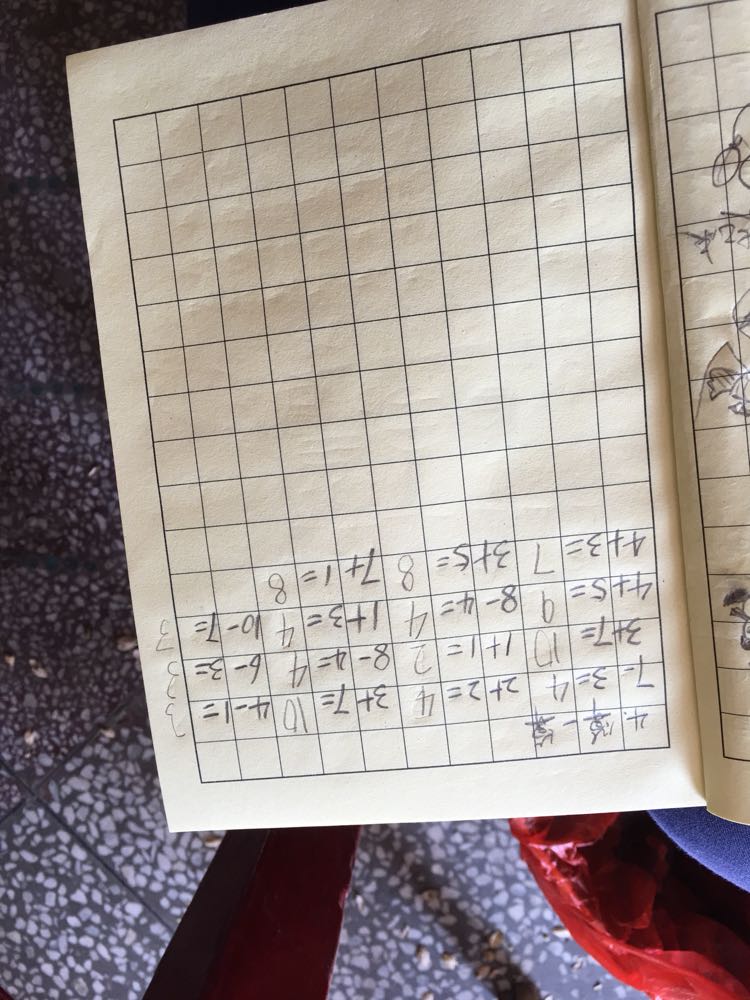 4. 算一算
7-3=4 2+2=4 3+7=10 4-1=3
3+7=10 1+1=2 8-4=4 6-3=3
4+5=9 8-4=4 1+3=4 10-7=3
4+3=7 3+5=8 7+1=8